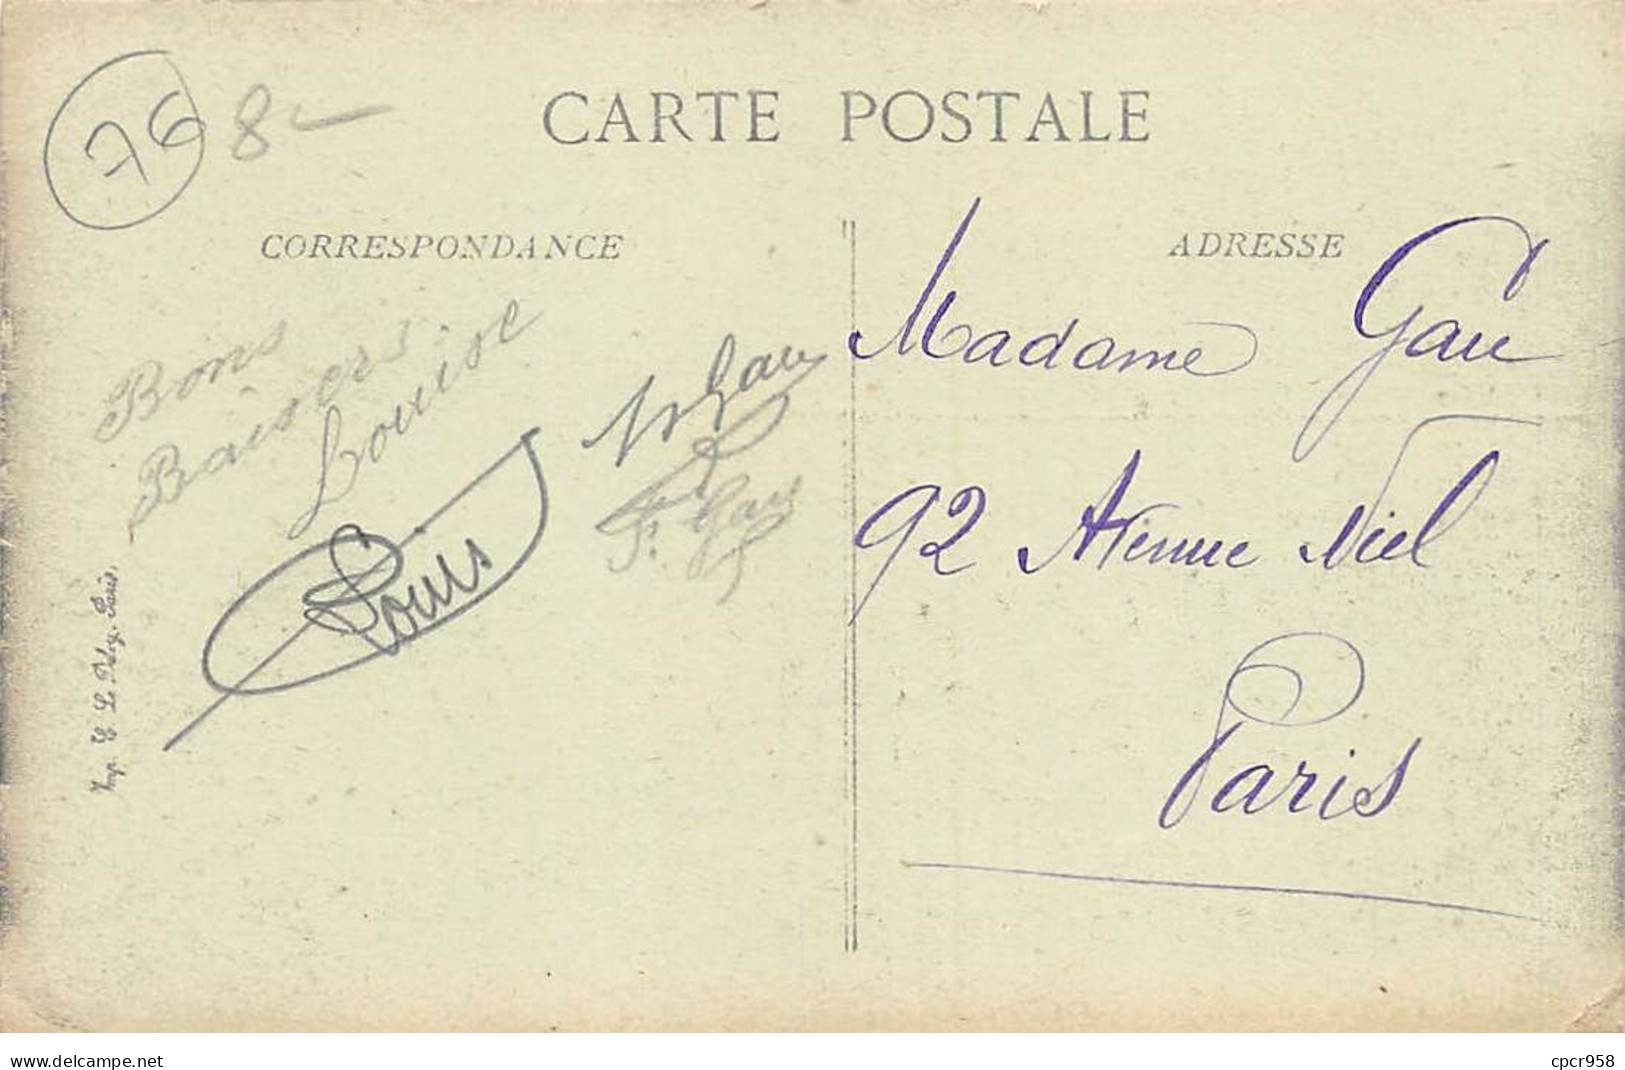 76 8 —
CARTE POSTALE
CORRESPONDANCE
ADRESSE
Bons
Baisers
Louise
Louis
Gau
F. Gau
Madame Gau
92 Avenue Niel
Paris
Imp. E. Le Deley, Paris.
www.delcampe.net
cpcr958